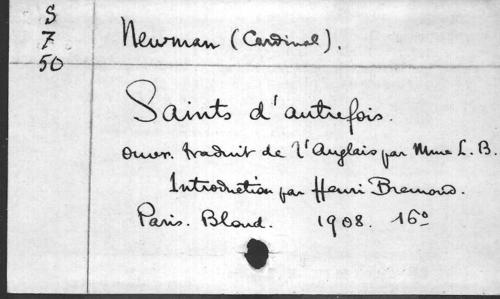 S
7
50
Newman (Cardinal).
Saints d'autrefois.
ouvr. traduit de l'Anglais par Mme L. B.
Introduction par Henri Bremond.
Paris. Bloud. 1908. 16º